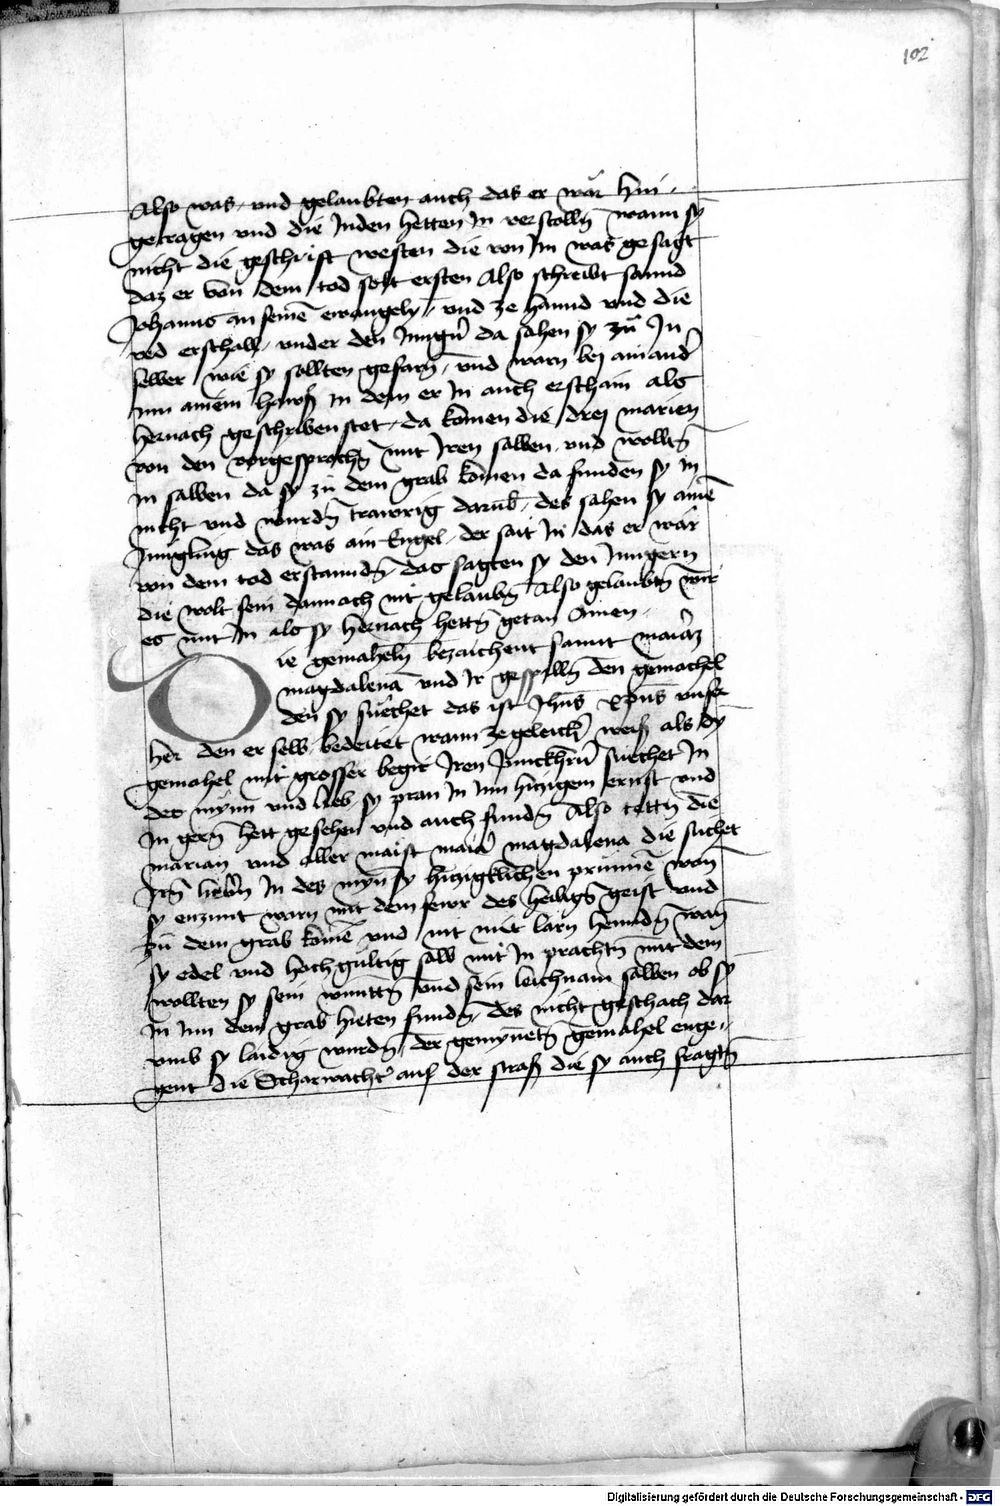 102
Also was / vnd gelaubten auch das er wår hin /
getragen vnd die Juden hetten in verstolln̄ wann sy
nicht die geschrift westen die von im was gesagt
daz er von dem tod solt ersten Also schreibt sannd
Johanns an seinē ewangely / vnd ze hannd vnd die
red erschall / vnder den Jungn̄ da sahen sy zů In
selber wie sy sollten gefarn̄ / vnd warn bej ainand̄
inn ainem hawß in dem er in auch erschain als
hernach geschriben stet / da komen die drej marien
von den vorgesprochn̄ mit Iren salben vnd wolltn̄
in salben da sy zů dem grab komen da funden sy in
nicht vnd wurdn̄ trawrig darūb / des sahen sy ainē
Jungling das was ain Engel / der sait in / das er wår
von dem tod erstanndn̄ das sagten sy den Jungern
die wolt sein dannoch nit gelaubn̄ Also gelaubtn̄ wir
es mit in als sy hernach hettn̄ getan Amen /
Die gemaheln̄ bezaichent sannt maria
magdalenā vnd ir gespilln̄ den gemachel
den sy sůchet das ist Jhūs xp̄us vnser
her den er selb bedeitet wann ze geleich̄ weiß als dÿ
gemahel mit grosser begir Iren Junckhrn̄ suechet In
des mynn vnd lieb sy pran in inn hiczigem ernst vnd
in gern̄ hett gesehen vnd auch fundn̄ Also tettn̄ die
marian vnd aller maist maria magdalena die suchet
Irn̄ liebn̄ In des myn̄ sy hiczigklichen prunnē wan̄
sy enzunt warn mit dem fewr des heiligs̄ geist vnd
zů dem grab komē vnd nit mit larn henndn̄ wan̄
sy edel vnd hochgůltig salb mit in prachtn̄ mit dem
wollten sy sein wunttn̄ vnd sein leichnam salben ob sy
in inn dem grab hieten fundn̄ / des nicht geschach dar
vmb sy laidig wurdn̄ / der gemyn̄etn̄ gemahel enge /
gent die Scharwacht̄ auf der straß die sy auch fragtn̄
Digitalisierung gefördert durch die Deutsche Forschungsgemeinschaft - DFG